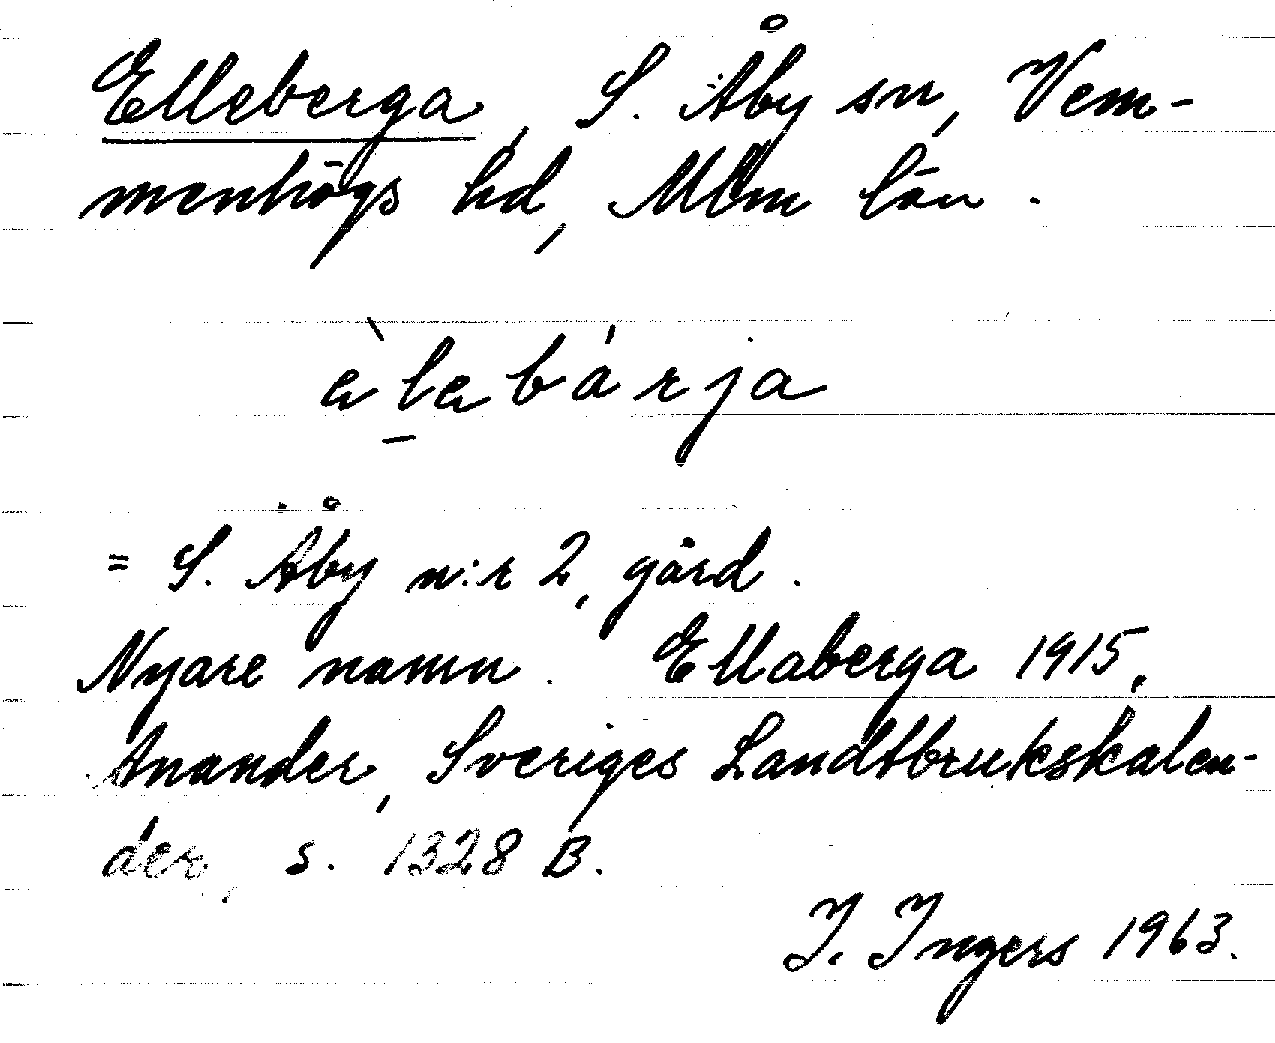 Elleberga, S. Åby sn, Vem-
menhögs hd, Mlm län.
àlabárja
= S. Åby n:r 2, gård.
Nyare namn. Ellaberga 1915,
Anander, Sveriges Landtbrukskalen-
der, s. 1328 B.
I. Ingers 1963.